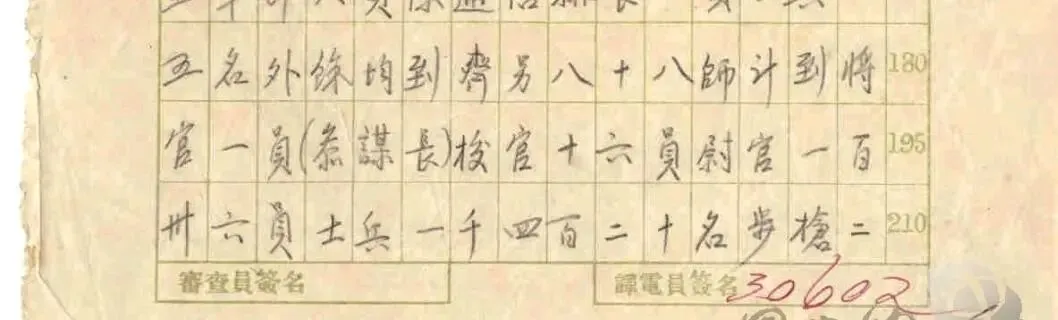 五名外餘均到齊另八十八師計到將 180
官一員(叅謀長)校官十六員尉官一百 195
卅六員士兵一千四百二十名步槍二 210
審查員簽名
譯電員簽名 30602